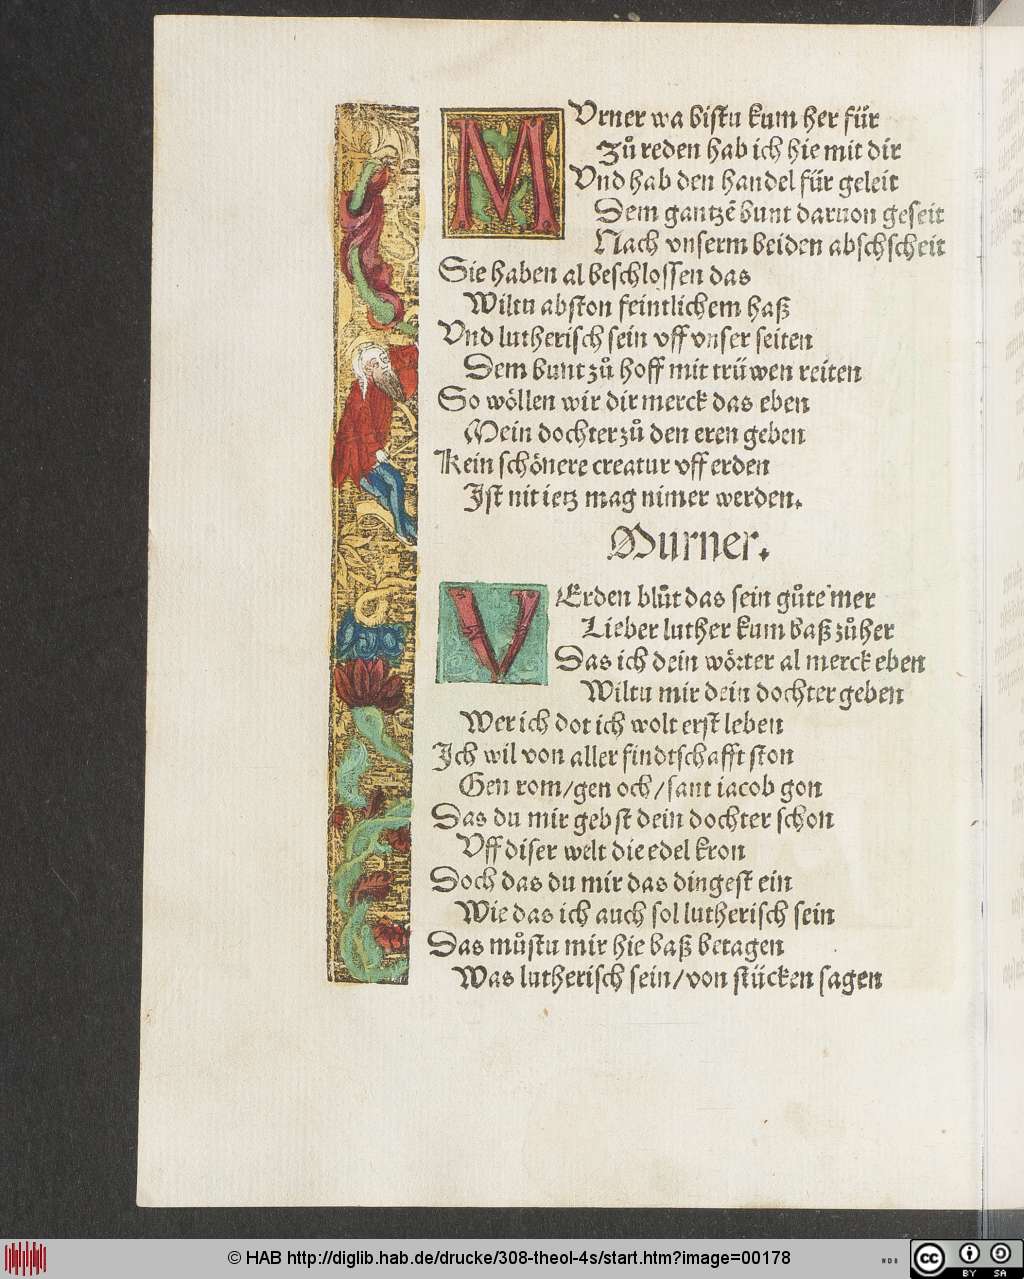 MVrner wa bistu kum her für
Zů reden hab ich hie mit dir
Vnd hab den handel für geleit
Dem gantzē bunt daruon geseit
Nach vnserm beiden abschscheit
Sie haben al beschlossen das
Wiltu abston feintlichem haß
Vnd lutherisch sein vff vnser seiten
Dem bunt zů hoff mit trüwen reiten
So wöllen wir dir merck das eben
Mein dochter zů den eren geben
Kein schönere creatur vff erden
Ist nit ietz mag nimer werden.
Murner.
VErden blůt das sein gůte mer
Lieber luther kum baß zů her
Das ich dein wörter al merck eben
Wiltu mir dein dochter geben
Wer ich dot ich wolt erst leben
Ich wil von aller findtschafft ston
Gen rom/gen och/sant iacob gon
Das du mir gebst dein dochter schon
Vff diser welt die edel kron
Doch das du mir das dingest ein
Wie das ich auch sol lutherisch sein
Das můstu mir hie baß betagen
Was lutherisch sein/von stücken sagen
© HAB http://diglib.hab.de/drucke/308-theol-4s/start.htm?image=00178
WDB
cc BY SA